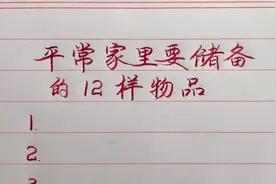 平常家里要储备
的12样物品
1.
2.
3.